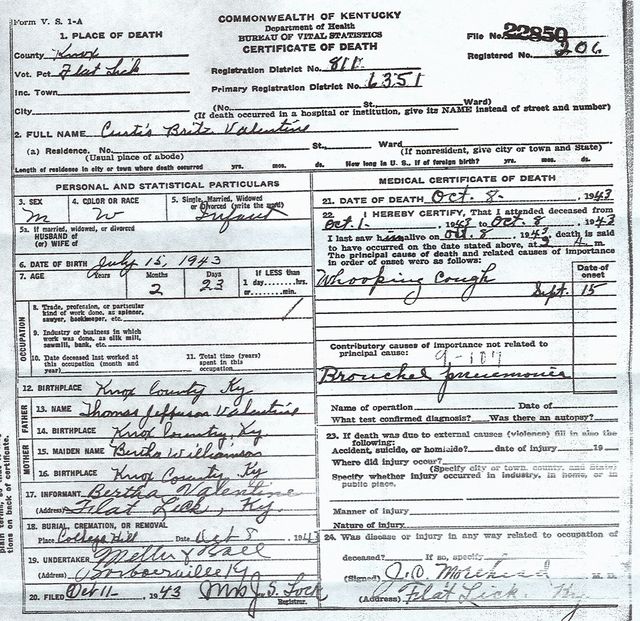 Form V. S. 1-A
COMMONWEALTH OF KENTUCKY
Department of Health
BUREAU OF VITAL STATISTICS
CERTIFICATE OF DEATH
File No. 22850
Registered No. 206
1. PLACE OF DEATH
County Knox
Vot. Pct. Flat Lick
Inc. Town
City
Registration District No. 811
Primary Registration District No. 6351
(No. St. Ward)
(If death occurred in a hospital or institution, give its NAME instead of street and number)
2. FULL NAME Curtis Britz Valentine
(a) Residence. No. St., Ward
(Usual place of abode) (If nonresident, give city or town and State)
Length of residence in city or town where death occurred yrs. mos. ds. How long in U. S., if of foreign birth? yrs. mos. ds.
PERSONAL AND STATISTICAL PARTICULARS
3. SEX
M
4. COLOR OR RACE
W
5. Single, Married, Widowed
or Divorced (write the word)
Infant
5a. If married, widowed, or divorced
HUSBAND of
(or) WIFE of
6. DATE OF BIRTH July 15, 1943
7. AGE Years Months Days If LESS than
2 23 1 day......hrs.
or......min.
OCCUPATION
8. Trade, profession, or particular
kind of work done, as spinner,
sawyer, bookkeeper, etc.
9. Industry or business in which
work was done, as silk mill,
sawmill, bank, etc.
10. Date deceased last worked at
this occupation (month and
year)
11. Total time (years)
spent in this
occupation
12. BIRTHPLACE Knox County Ky
FATHER
13. NAME Thomas Jefferson Valentine
14. BIRTHPLACE Knox County, Ky
MOTHER
15. MAIDEN NAME Bertha Williamson
16. BIRTHPLACE Knox County Ky
17. INFORMANT Bertha Valentine
(Address) Flat Lick, Ky.
18. BURIAL, CREMATION, OR REMOVAL
Place College Hill Date Oct 8 1943
19. UNDERTAKER
(Address) Barbourville Ky
20. FILED Oct 11 1943 Mrs J. S. Lock
Registrar.
MEDICAL CERTIFICATE OF DEATH
21. DATE OF DEATH Oct. 8. 1943
22. I HEREBY CERTIFY, That I attended deceased from
Oct. 1 1943 to Oct. 8 1943
I last saw h alive on Oct 8 1943, death is said
to have occurred on the date stated above, at m
The principal cause of death and related causes of importance
in order of onset were as follows:
Date of
onset
Whooping Cough
Sept. 15
Contributory causes of importance not related to
principal cause:
9-107
Bronchel pneumonia
Name of operation Date of
What test confirmed diagnosis? Was there an autopsy?
23. If death was due to external causes (violence) fill in also the
following:
Accident, suicide, or homicide? date of injury 19
Where did injury occur?
(Specify city or town, county, and State)
Specify whether injury occurred in industry, in home, or in
public place.
Manner of injury
Nature of injury
24. Was disease or injury in any way related to occupation of
deceased? If so, specify
(Signed) J. O. Morehead M. D.
(Address) Flat Lick. Ky
plain terms,
tions on back of certificate.